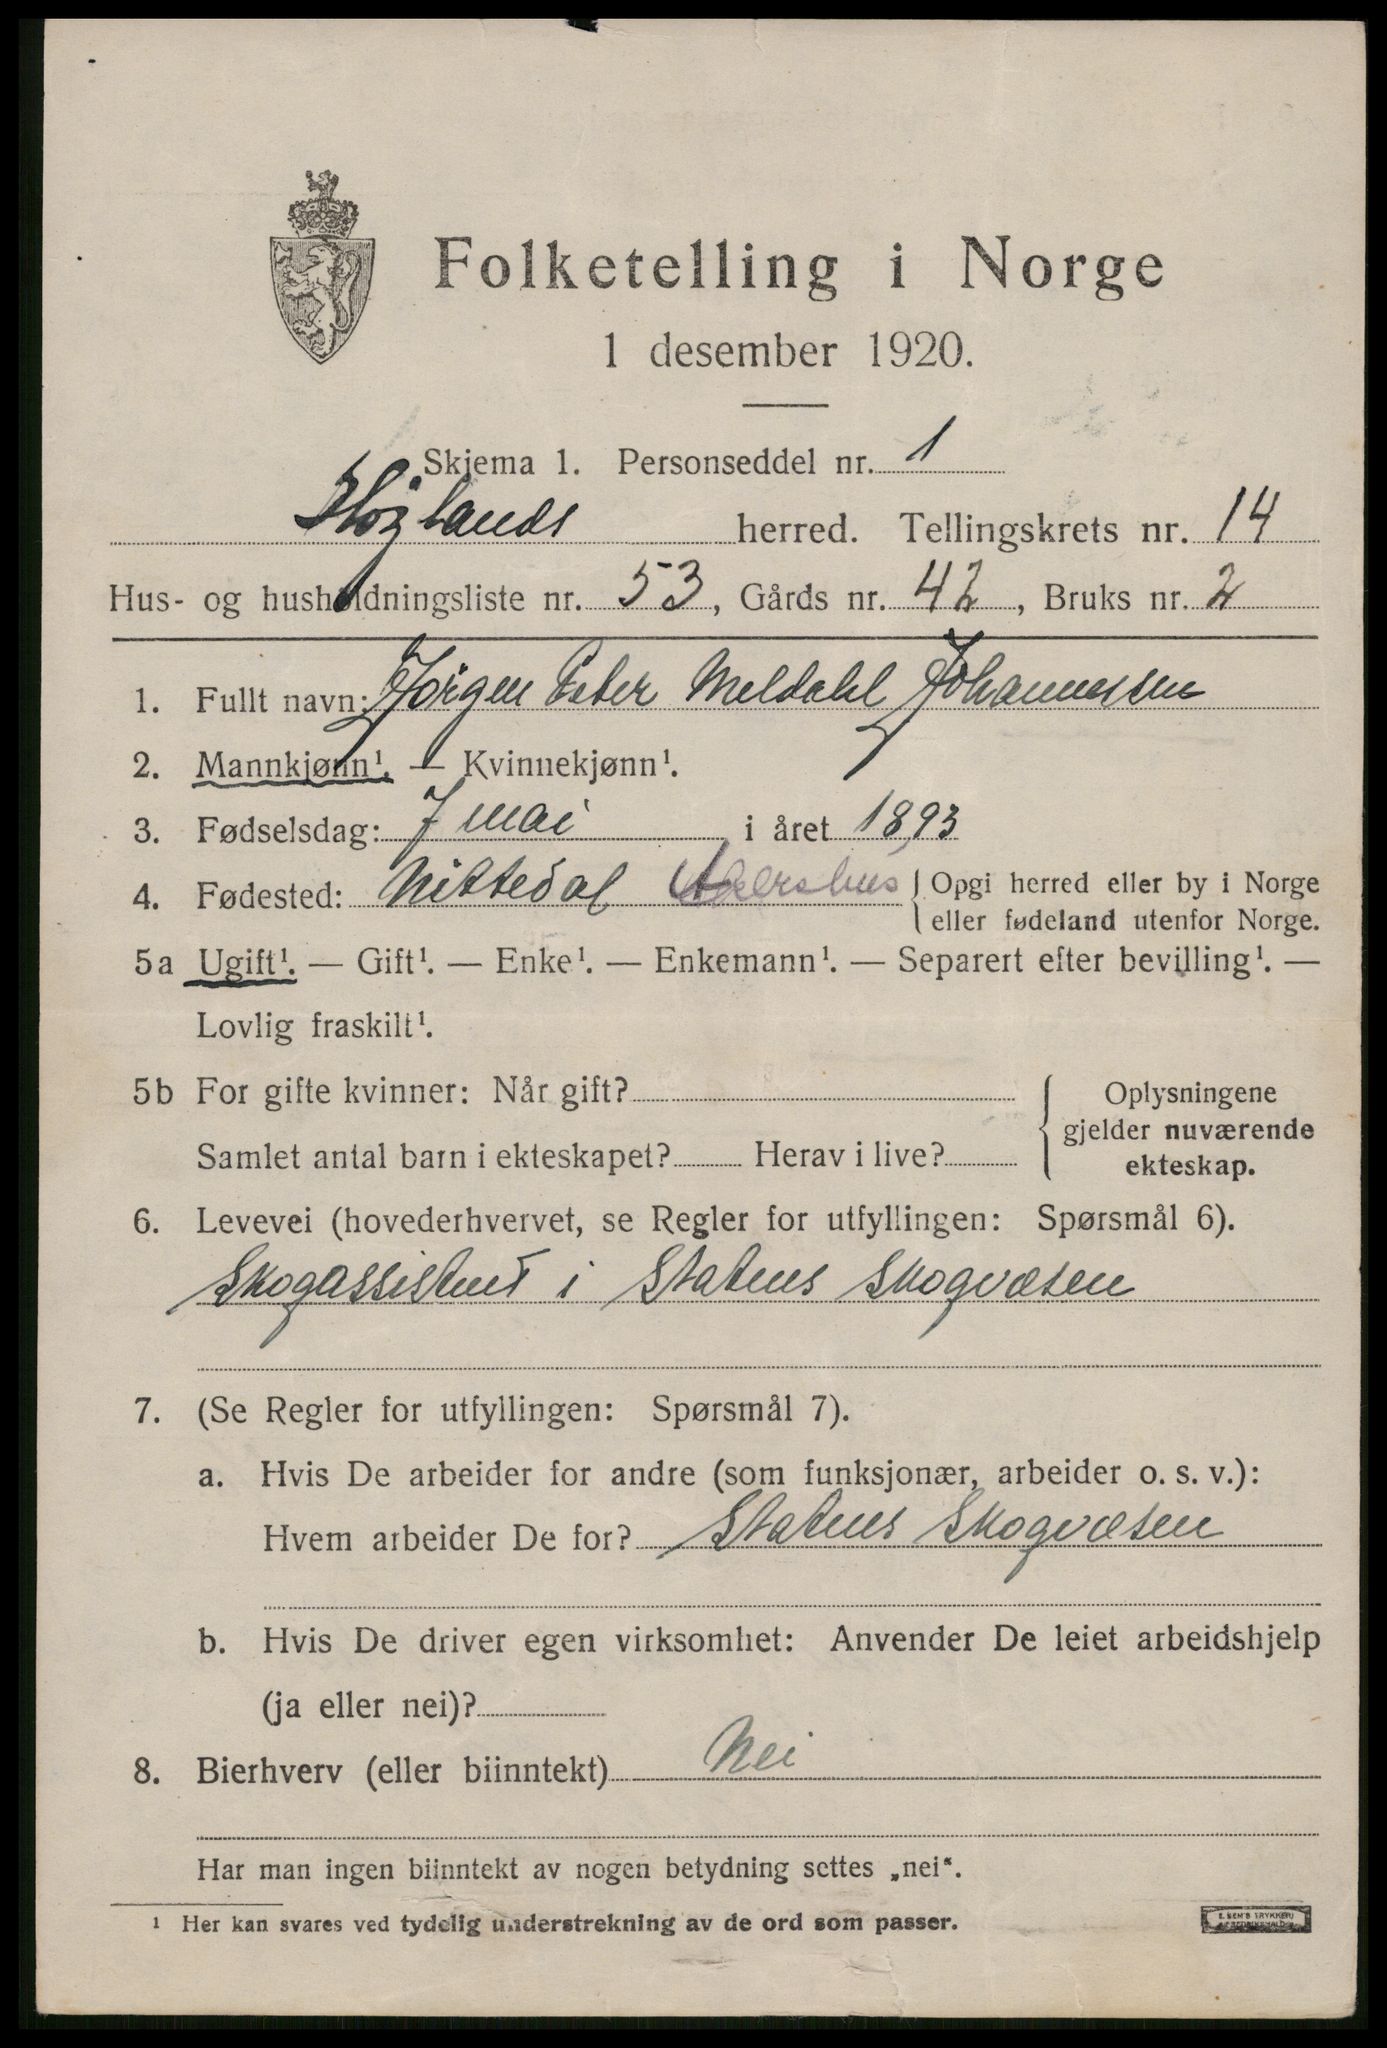 Folketelling i Norge
1 desember 1920.
Skjema 1. Personseddel nr. 1
Høylands herred. Tellingskrets nr. 14
Hus- og husholdningsliste nr. 53, Gårds nr. 42, Bruks nr. 2
1. Fullt navn: Jørgen Peter Meldahl Johannessen
2. Mannkjønn¹. — Kvinnekjønn¹.
3. Fødselsdag: 7 mai i året 1893
4. Fødested: Nittedal Akershus { Opgi herred eller by i Norge
eller fødeland utenfor Norge.
5a Ugift¹. — Gift¹. — Enke¹. — Enkemann¹. — Separert efter bevilling¹. —
Lovlig fraskilt¹.
5b For gifte kvinner: Når gift?
Samlet antal barn i ekteskapet? Herav i live?
Oplysningene
gjelder nuværende
ekteskap.
6. Levevei (hovederhvervet, se Regler for utfyllingen: Spørsmål 6).
Skogassistent i Statens Skogvæsen
7. (Se Regler for utfyllingen: Spørsmål 7).
a. Hvis De arbeider for andre (som funksjonær, arbeider o. s. v.):
Hvem arbeider De for? Statens Skogvæsen
b. Hvis De driver egen virksomhet: Anvender De leiet arbeidshjelp
(ja eller nei)?
8. Bierhverv (eller biinntekt) Nei
Har man ingen biinntekt av nogen betydning settes „nei“.
¹ Her kan svares ved tydelig understrekning av de ord som passer.